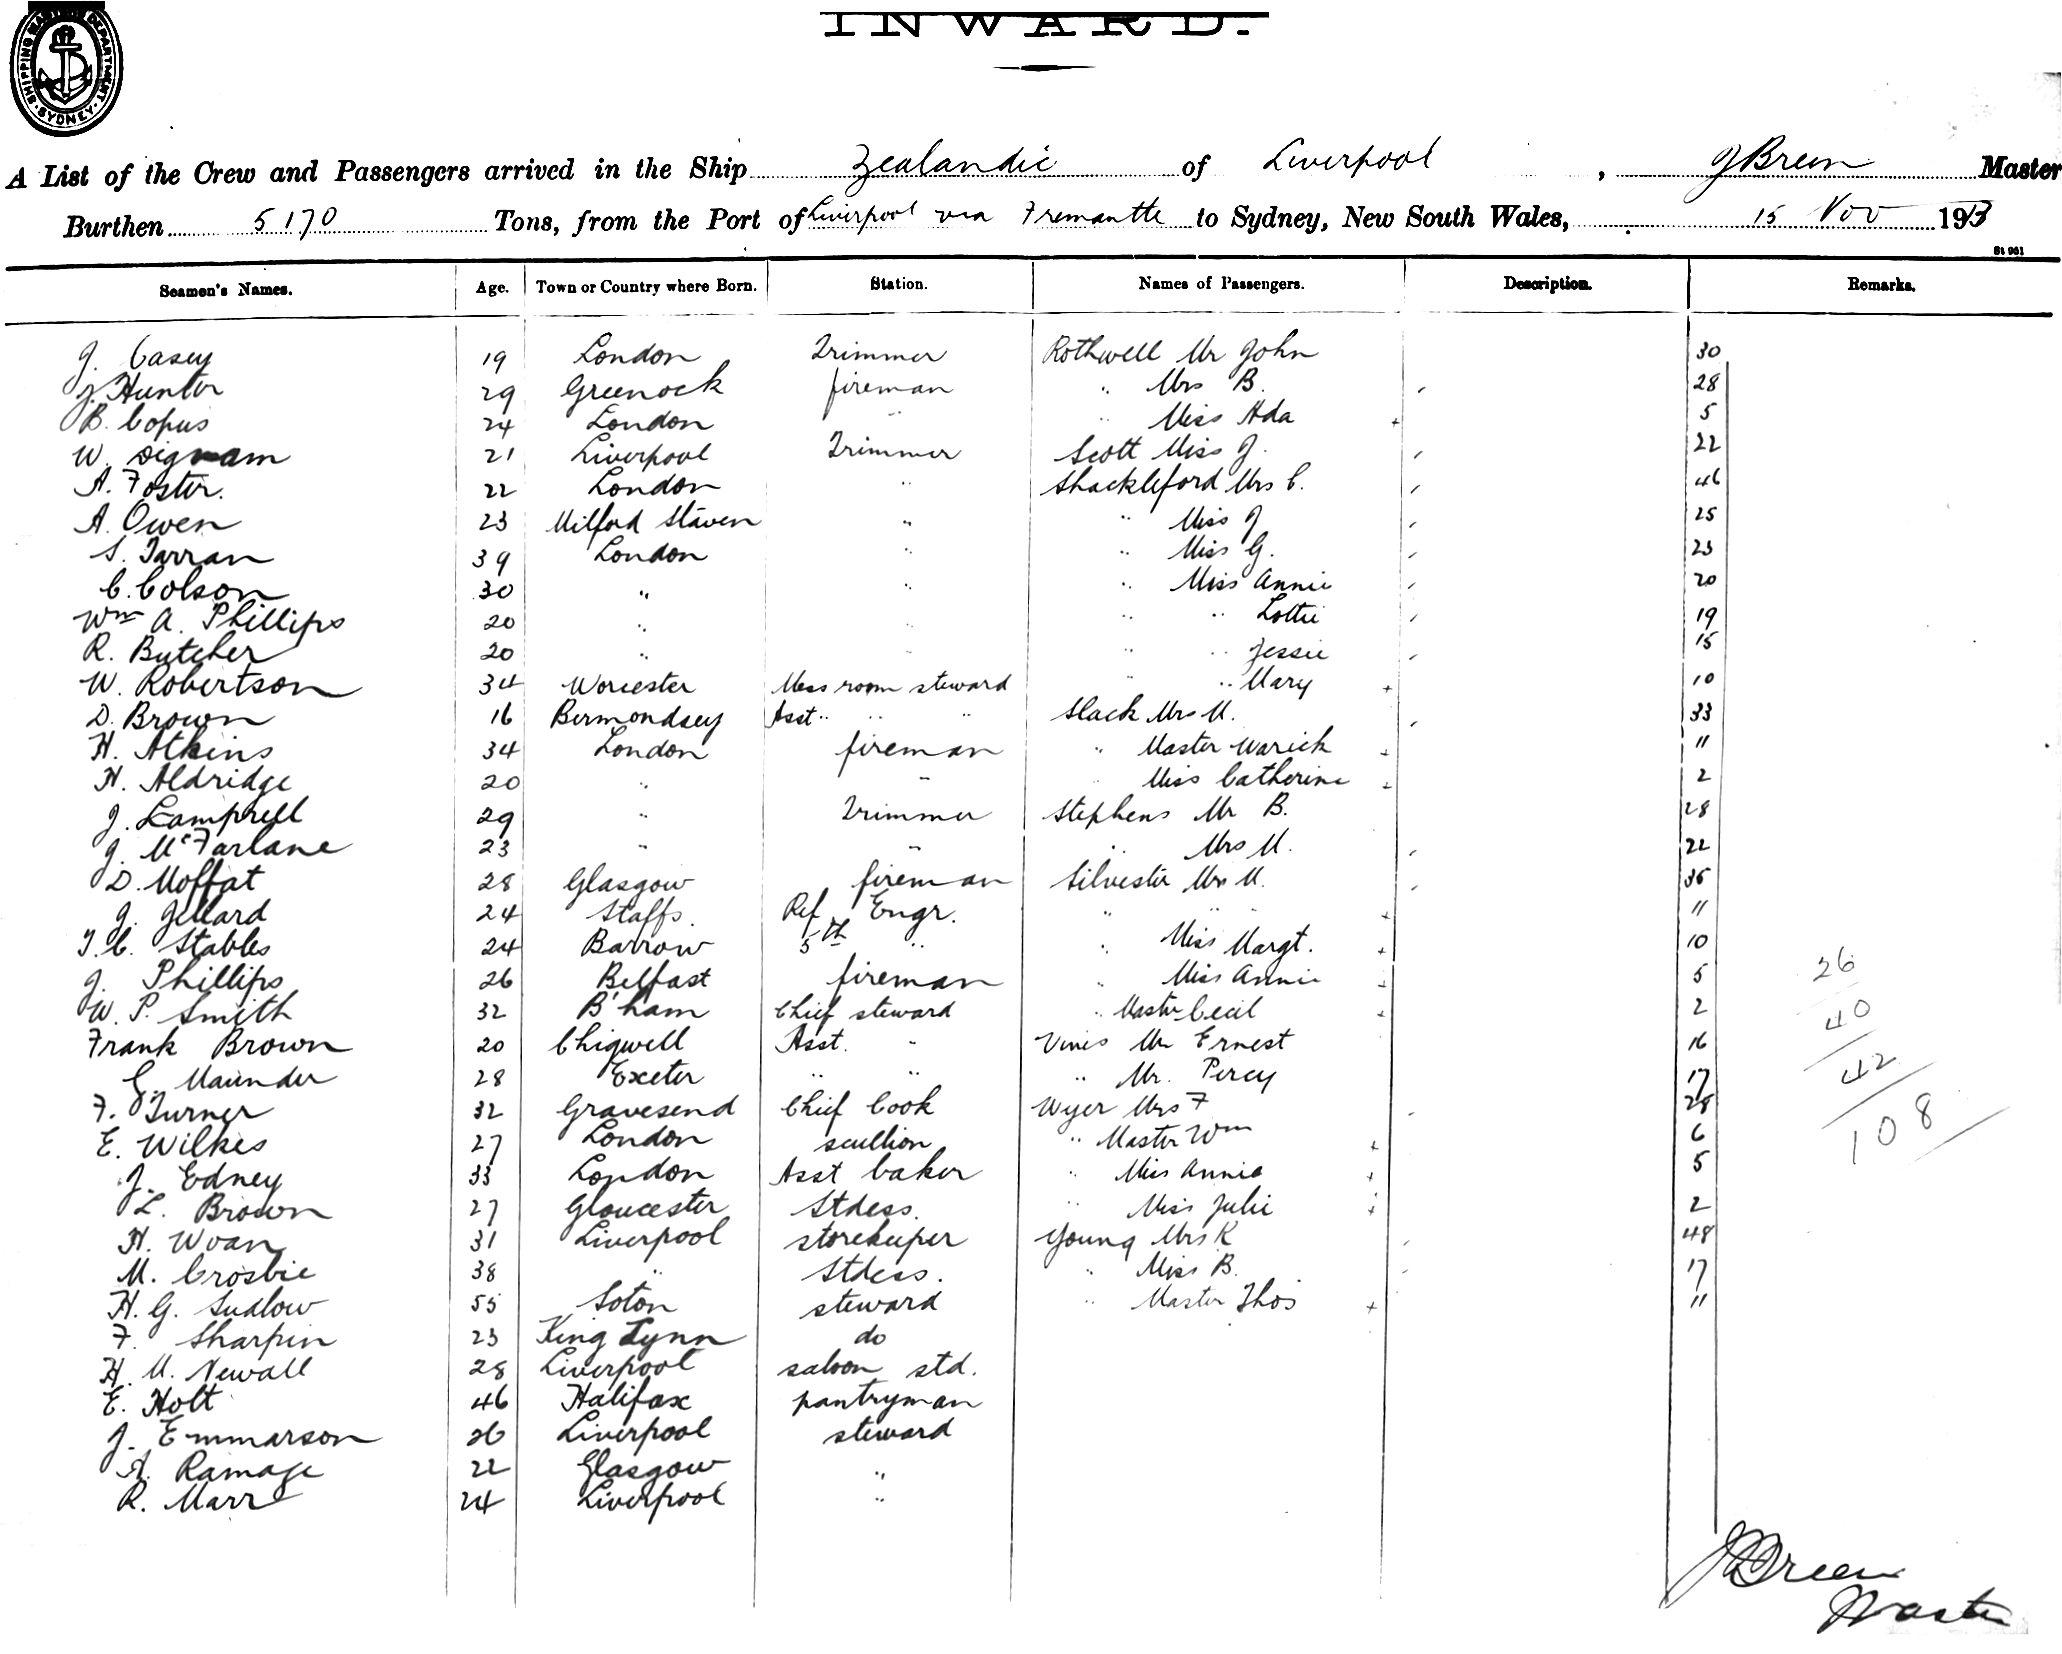 SHIPPING MASTER'S DEPARTMENT · SYDNEY ·
INWARD.
A List of the Crew and Passengers arrived in the Ship Zealandic of Liverpool, J Breen Master
Burthen 5170 Tons, from the Port of Liverpool via Fremantle to Sydney, New South Wales, 15 Nov 1913
St 961
Seamen's Names. Age. Town or Country where Born. Station. Names of Passengers. Description. Remarks.
J. Casey 19 London Trimmer Rothwell Mr John 30
J. Hunter 29 Greenock fireman " Mrs B. 28
B. Copus 24 London " " Miss Ada 5
W. Dignam 21 Liverpool Trimmer Scott Miss J. 22
A. Foster. 22 London " Shackleford Mrs C. 46
A. Owen 23 Milford Haven " " Miss J 25
S. Tarran 39 London " " Miss G. 23
C. Colson 30 " " " Miss Annie 20
Wm A. Phillips 20 " " " " Lottie 19
R. Butcher 20 " " " " Jessie 15
W. Robertson 34 Worcester Mess room steward " " Mary 10
D. Brown 16 Bermondsey Asst " " " Slack Mrs M. 33
H. Atkins 34 London fireman " Master Warick 11
H. Aldridge 20 " " " Miss Catherine 2
J. Lamprell 29 " Trimmer Stephens Mr B. 28
J. McFarlane 23 " " " Mrs M. 22
D. Moffat 28 Glasgow fireman Silvester Mrs M. 35
J. Jellard 24 Staffs. Ref Engr. " " " 11
T. C. Stables 24 Barrow 5th " " Miss Margt. 10
J. Phillips 26 Belfast fireman " Miss Annie 5
W. P. Smith 32 B'ham Chief steward " Master Cecil 2
Frank Brown 20 Chigwell Asst. " Vines Mr Ernest 16
G. Maunder 28 Exeter " " " Mr. Percy 17
F. Turner 32 Gravesend Chief Cook Wyer Mrs F 28
E. Wilkes 27 London scullion " Master Wm 6
J. Edney 33 London Asst baker " Miss Annie 5
L. Brown 27 Gloucester Stdess. " Miss Julie 2
H. Woan 31 Liverpool storekeeper Young Mrs K 48
M. Crosbie 38 " Stdess. " Miss B. 17
H. G. Sudlow 55 Soton steward " Master Thos 11
F. Sharpin 23 King Lynn do
H. M. Newall 28 Liverpool saloon std.
E. Holt 46 Halifax pantryman
J. Emmarson 26 Liverpool steward
A. Ramage 22 Glasgow "
R. Marr 24 Liverpool "
26
40
42
108
J Breen
Master